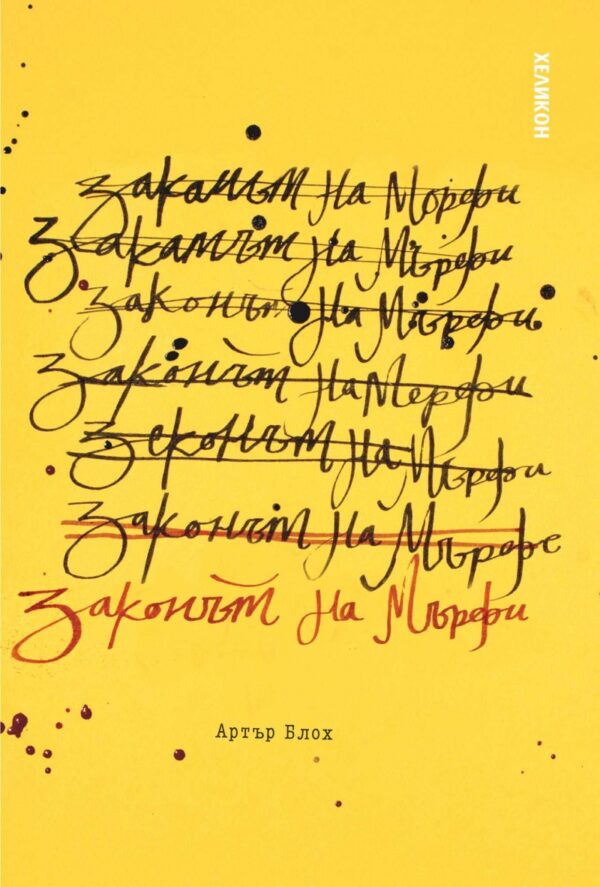 ХЕЛИКОН
закамът на Морфи
закамът на Мърфи
законът на Мърфи
законът на Мерфи
зеконът на Мърфи
законът на Мърфе
законът на Мърфи
Артър Блох